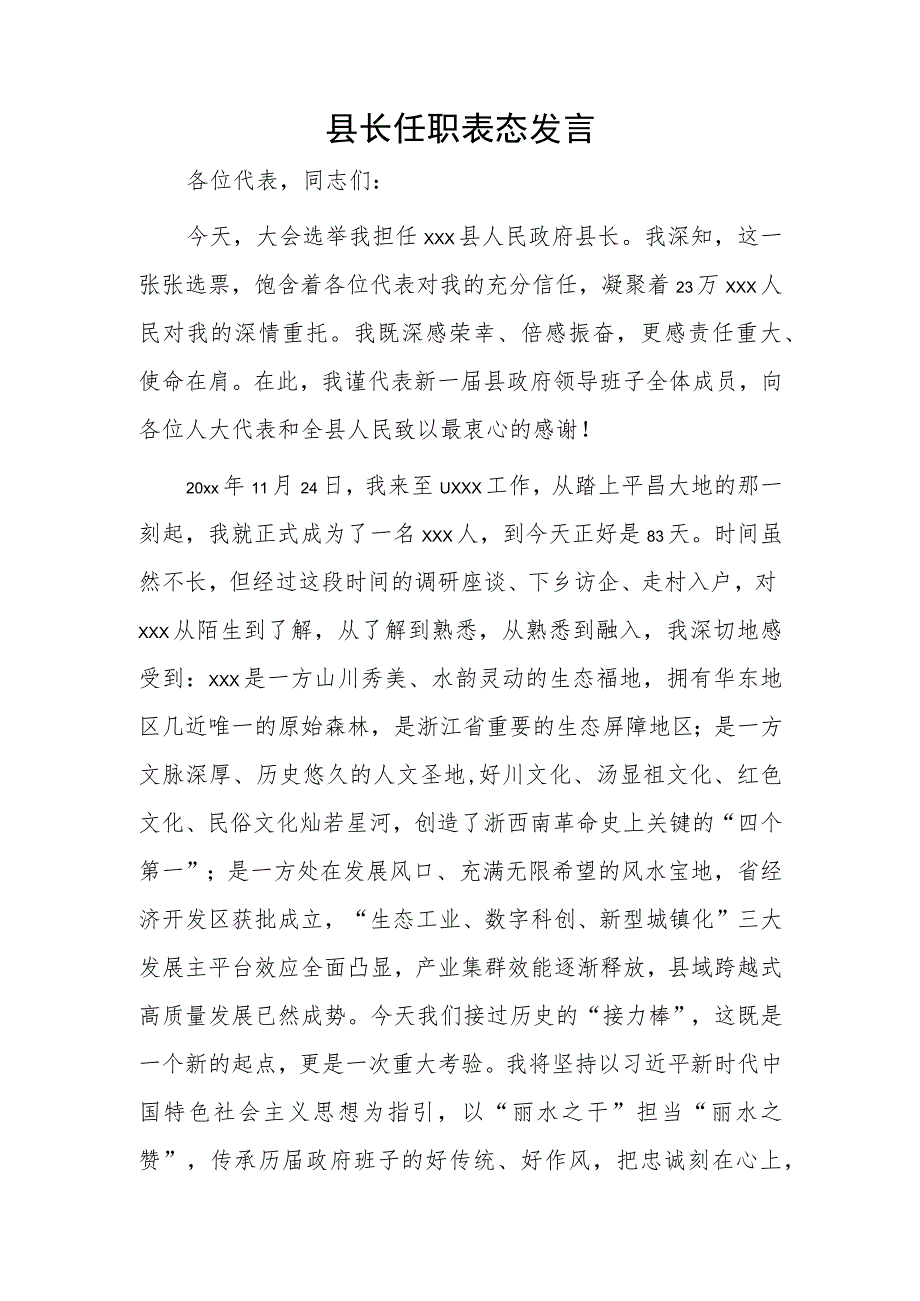 县长任职表态发言
各位代表，同志们：
今天，大会选举我担任 xxx 县人民政府县长。我深知，这一
张张选票，饱含着各位代表对我的充分信任，凝聚着 23 万 xxx 人
民对我的深情重托。我既深感荣幸、倍感振奋，更感责任重大、
使命在肩。在此，我谨代表新一届县政府领导班子全体成员，向
各位人大代表和全县人民致以最衷心的感谢！
20xx 年 11 月 24 日，我来至 UXXX 工作，从踏上平昌大地的那一
刻起，我就正式成为了一名 xxx 人，到今天正好是 83 天。时间虽
然不长，但经过这段时间的调研座谈、下乡访企、走村入户，对
xxx 从陌生到了解，从了解到熟悉，从熟悉到融入，我深切地感
受到：xxx 是一方山川秀美、水韵灵动的生态福地，拥有华东地
区几近唯一的原始森林，是浙江省重要的生态屏障地区；是一方
文脉深厚、历史悠久的人文圣地,好川文化、汤显祖文化、红色
文化、民俗文化灿若星河，创造了浙西南革命史上关键的“四个
第一”；是一方处在发展风口、充满无限希望的风水宝地，省经
济开发区获批成立，“生态工业、数字科创、新型城镇化”三大
发展主平台效应全面凸显，产业集群效能逐渐释放，县域跨越式
高质量发展已然成势。今天我们接过历史的“接力棒”，这既是
一个新的起点，更是一次重大考验。我将坚持以习近平新时代中
国特色社会主义思想为指引，以“丽水之干”担当“丽水之
赞”，传承历届政府班子的好传统、好作风，把忠诚刻在心上，